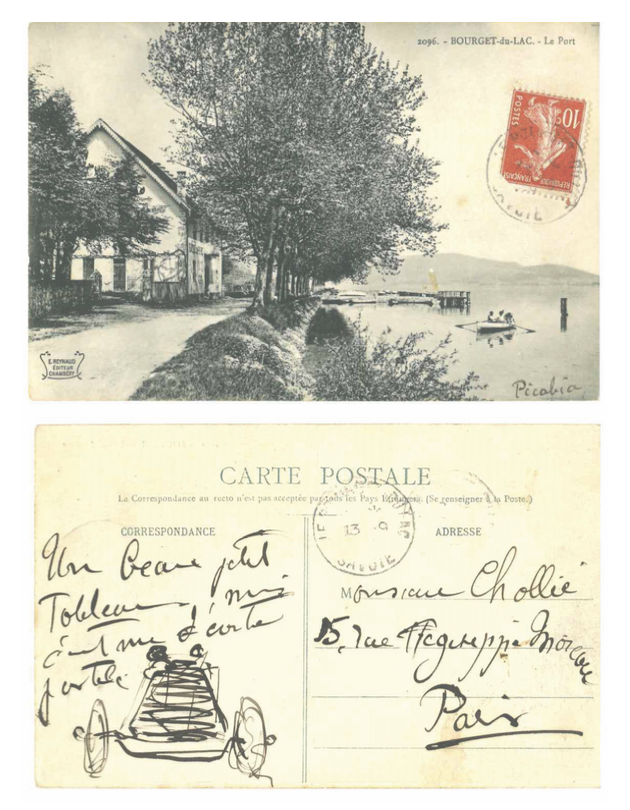 2096. - BOURGET-du-LAC. - Le Port
POSTES
10c
RÉPUBLIQUE FRANÇAISE
SAVOIE
E. REYNAUD
ÉDITEUR
CHAMBÉRY
Picabia
CARTE POSTALE
La Correspondance au recto n'est pas acceptée par tous les Pays Étrangers. (Se renseigner à la Poste.)
CORRESPONDANCE
ADRESSE
13 -9
SAVOIE
Un beau petit
Tableau, mais
c'est une
postale
Monsieur Chollié
15, rue Hégésippe Moreau
Paris